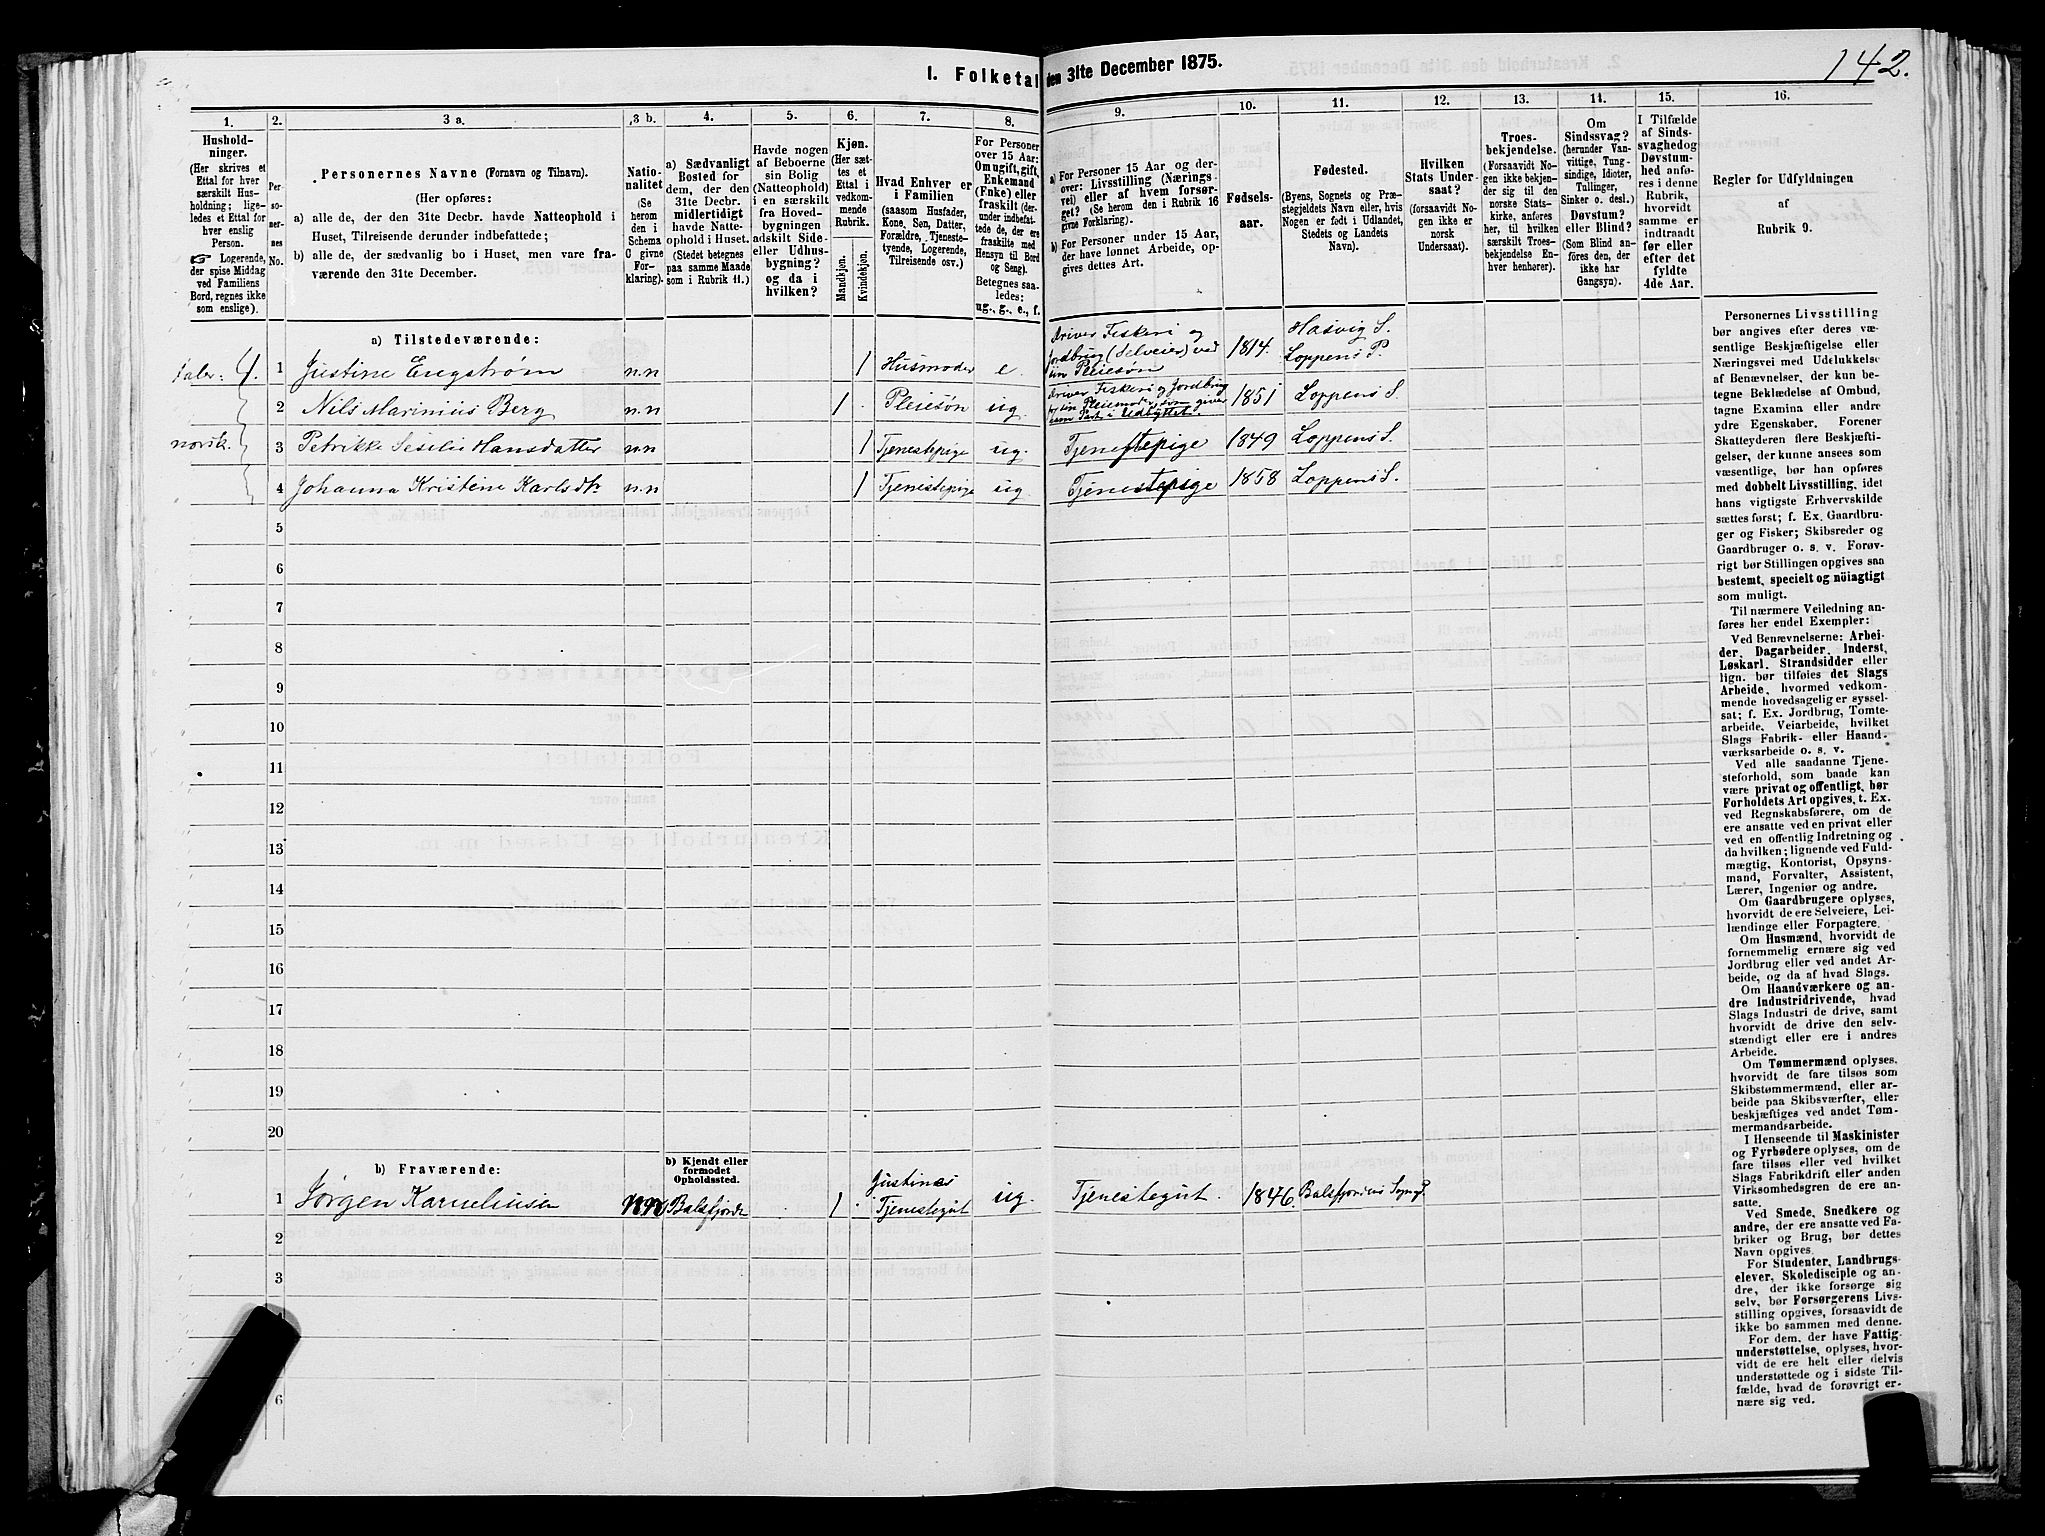 1. Folketal den 31te December 1875.
142.
1. 2. 3 a. 3 b. 4. 5. 6. 7. 8. 9. 10. 11. 12. 13. 14. 15. 16.
Hushold-
ninger.
(Her skrives et
Ettal for hver
særskilt Hus-
holdning; lige-
ledes et Ettal for
hver enslig
Person.
☞ Logerende,
der spise Middag
ved Familiens
Bord, regnes ikke
som enslige).
Per-
so-
ner-
nes
No.
Personernes Navne (Fornavn og Tilnavn).
(Her opføres:
a) alle de, der den 31te Decbr. havde Natteophold i
Huset, Tilreisende derunder indbefattede;
b) alle de, der sædvanlig bo i Huset, men vare fra-
værende den 31te December.
Natio-
nalitet
(Se
herom
den i
Schema
C givne
For-
klaring).
a) Sædvanligt
Bosted for
dem, der den
31te Decbr.
midlertidigt
havde Natte-
ophold i Huset.
(Stedet betegnes
paa samme Maade
som i Rubrik 11.)
Havde nogen
af Beboerne
sin Bolig
(Natteophold)
i en særskilt
fra Hoved-
bygningen
adskilt Side-
eller Udhus-
bygning?
og da i
hvilken?
Kjøn.
(Her sæt-
tes et
Ettal i
vedkom-
mende
Rubrik.
Mandkjøn.
Kvindekjøn.
Hvad Enhver er
i Familien
(saasom Husfader,
Kone, Søn, Datter,
Forældre, Tjeneste-
tyende, Logerende,
Tilreisende osv.)
For Personer
over 15 Aar:
Om ugift, gift,
Enkemand
(Enke) eller
fraskilt (der-
under indbefat-
tede de, der ere
fraskilte med
Hensyn til Bord
og Seng).
Betegnes saa-
ledes:
ug., g., e., f.
a) For Personer 15 Aar og der-
over: Livsstilling (Nærings-
vei) eller af hvem forsør-
get? (Se herom den i Rubrik 16
givne Forklaring).
b) For Personer under 15 Aar,
der have lønnet Arbeide, op-
gives dettes Art.
Fødsels-
aar.
Fødested.
(Byens, Sognets og Præ-
stegjeldets Navn eller, hvis
Nogen er født i Udlandet,
Stedets og Landets
Navn).
Hvilken
Stats Under-
saat?
(forsaavidt No-
gen ikke er
norsk
Undersaat).
Troes-
bekjendelse.
(Forsaavidt No-
gen ikke bekjen-
der sig til den
norske Stats-
kirke, anføres
her, til hvilken
særskilt Troes-
bekjendelse En-
hver henhører).
Om
Sindssvag?
(herunder Van-
vittige, Tung-
sindige, Idioter,
Tullinger,
Sinker o. desl.)
Døvstum?
eller Blind?
(Som Blind an-
føres den, der
ikke har
Gangsyn).
I Tilfælde
af Sinds-
svaghed og
Døvstum-
hed anfø-
res i denne
Rubrik,
hvorvidt
samme er
indtraadt
før eller
efter det
fyldte
4de Aar.
Regler for Udfyldningen
af
Rubrik 9.
a) Tilstedeværende:
taler: 4. 1 Justine Engstrøm n.n 1 Husmoder e. driver Fiskeri og jordbrug (Selveier) ved sin Pleiesøn 1814. Hasvig S. Loppens P.
2 Nils Marinius Berg n.n 1 Pleiesøn ug. driver Fiskeri og Jordbrug for sin Pleiemoder, som giver ham Part i Udbyttet. 1851 Loppens S.
norsk. 3 Petrikke Seselie Hansdatter n.n 1 Tjenestepige ug. Tjenestepige 1849 Loppens S.
4 Johanna Kristine Karlsdtr n.n 1 Tjenestepige ug. Tjenestepige 1858 Loppens S.
5
6
7
8
9
10
11
12
13
14
15
16
17
18
19
20
b) Fraværende:
b) Kjendt eller
formodet
Opholdssted.
1 Jørgen Karneliusen Balsfjorden 1 Justines Tjenestegut ug. Tjenestegut. 1846. Balsfjordens Sogn
2
3
6
Personernes Livsstilling
bør angives efter deres væ-
sentlige Beskjæftigelse eller
Næringsvei med Udelukkelse
af Benævnelser, der kun be-
tegne Beklædelse af Ombud,
tagne Examina eller andre
ydre Egenskaber. Forener
Skatteyderen flere Beskjæfti-
gelser, der kunne ansees som
væsentlige, bør han opføres
med dobbelt Livsstilling, idet
hans vigtigste Erhvervskilde
sættes først; f. Ex. Gaardbru-
ger og Fisker; Skibsreder og
Gaardbruger o. s. v. Forøv-
rigt bør Stillingen opgives saa
bestemt, specielt og nöiagtigt
som muligt.
Til nærmere Veiledning an-
føres her endel Exempler:
Ved Benævnelserne: Arbei-
der, Dagarbeider, Inderst,
Løskarl, Strandsidder eller
lign. bør tilføies det Slags
Arbeide, hvormed vedkom-
mende hovedsagelig er syssel-
sat; f. Ex. Jordbrug, Tomte-
arbeide, Veiarbeide, hvilket
Slags Fabrik- eller Haand-
værksarbeide o. s. v.
Ved alle saadanne Tjene-
steforhold, som baade kan
være privat og offentligt, bør
Forholdets Art opgives, t. Ex.
ved Regnskabsførere, om de
ere ansatte ved en privat eller
ved en offentlig Indretning og
da hvilken; lignende ved Fuld-
mægtig, Kontorist, Opsyns-
mand, Forvalter, Assistent,
Lærer, Ingeniør og andre.
Om Gaardbrugere oplyses,
hvorvidt de ere Selveiere, Lei-
lændinge eller Forpagtere.
Om Husmænd, hvorvidt de
fornemmelig ernære sig ved
Jordbrug eller ved andet Ar-
beide, og da af hvad Slags.
Om Haandværkere og an-
dre Industridrivende, hvad
Slags Industri de drive, samt
hvorvidt de drive den selv-
stændigt eller ere i andres
Arbeide.
Om Tømmermænd oplyses,
hvorvidt de fare tilsøs som
Skibstømmermænd, eller ar-
beide paa Skibsværfter, eller
beskjæftiges ved andet Tøm-
mermandsarbeide.
I Henseende til Maskinister
og Fyrbødere oplyses, om de
fare tilsøs eller ved hvilket
Slags Fabrikdrift eller anden
Virksomhedsgren de ere an-
satte.
Ved Smede, Snedkere og
andre, der ere ansatte ved Fa-
briker og Brug, bør dettes
Navn opgives.
For Studenter, Landbrugs-
elever, Skoledisciple og an-
dre, der ikke forsørge sig
selv, bør Forsørgerens Livs-
stilling opgives, forsaavidt de
ikke bo sammen med denne.
For dem, der have Fattig-
understøttelse, oplyses, hvor-
vidt de ere helt eller delvis
understøttede og i sidste Til-
fælde, hvad de forøvrigt er-
nære sig ved.